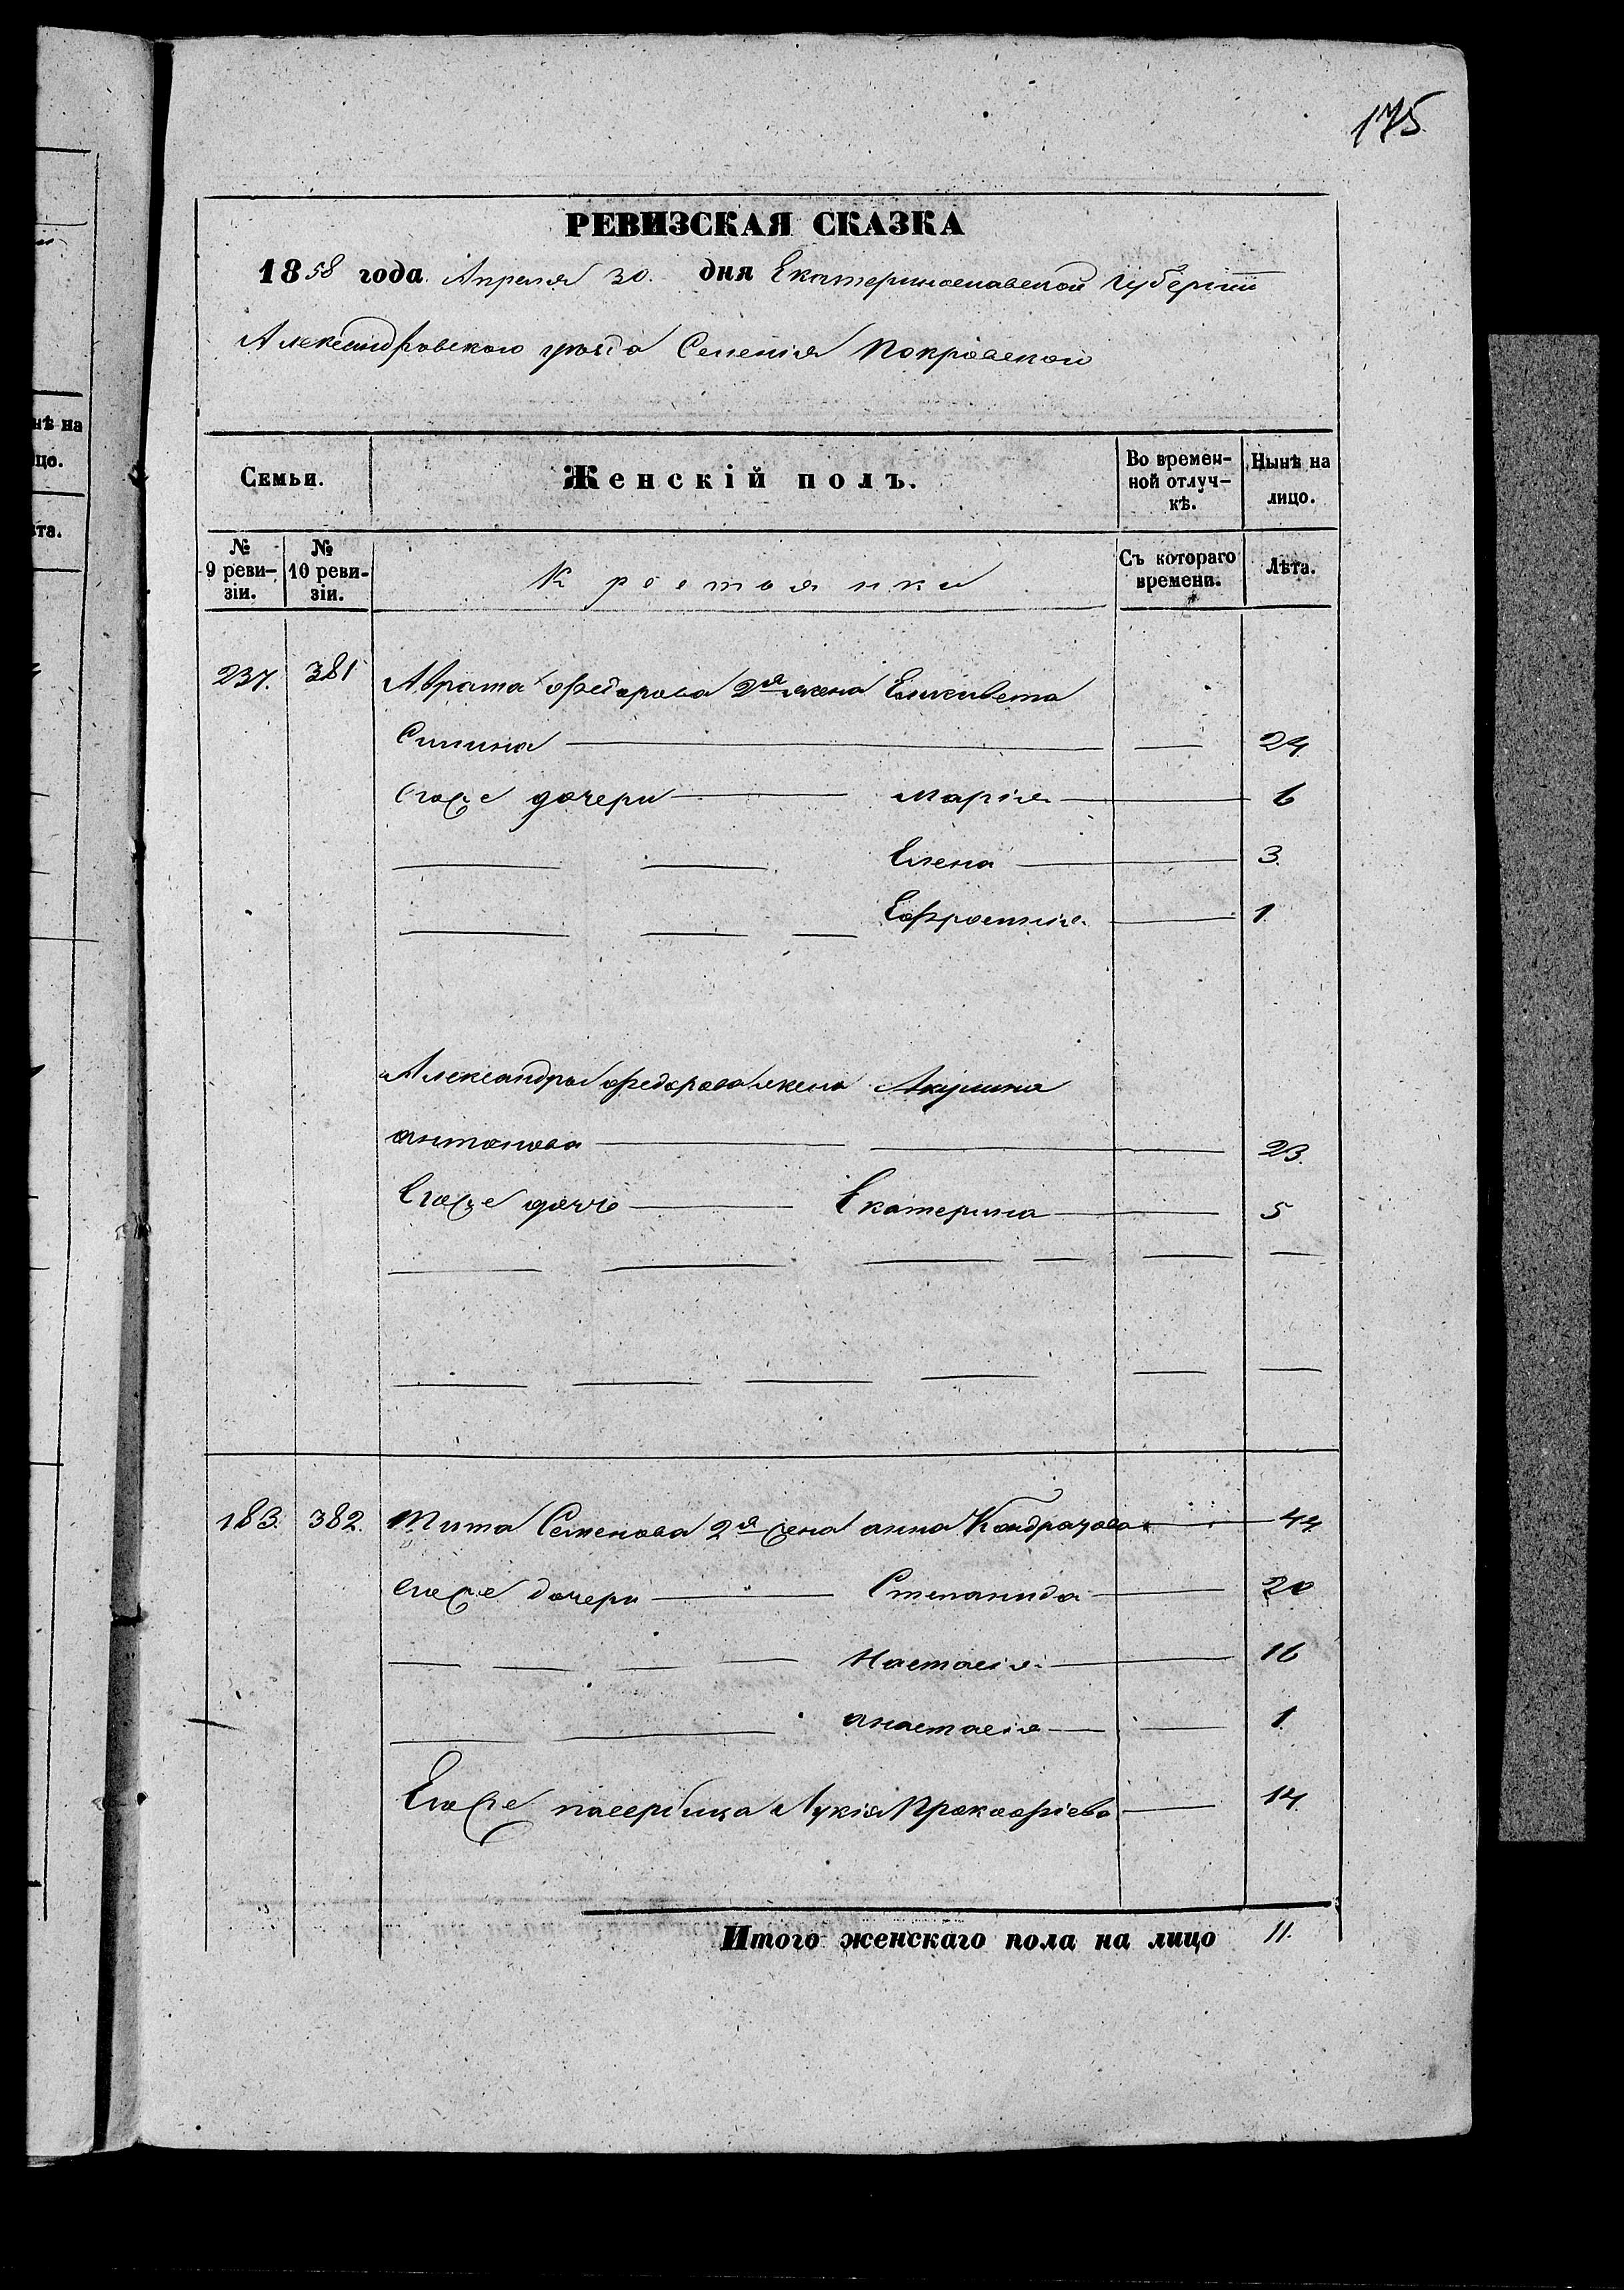 175
РЕВИЗСКАЯ СКАЗКА
1858 года Апреля 30 дня Екатеринославской губерніи
Александровского уезда Селенія Покровского
Семьи.
Женскій полъ.
Во времен-
ной отлуч-
кѣ.
Нынѣ на
лицо.
№
9 реви-
зіи.
№
10 реви-
зіи.
Крестьянки
Съ котораго
времени.
Лѣта.
237. 381 Аврама Федорова 2я жена Елисавета
Силина 24
Его же дочери Марія 6
Елена 3.
Ефросинія 1.
Александра Федорова жена Акулина
антонова 23.
Его же дочь Екатерина 5
183. 382. Тита Семенова 2я жена анна Кондратова 44
его же дочери Степанида 20
Настасія 16
анастасія 1.
Его же пасербица Лукія Прокофіева 14.
Итого женскаго пола на лицо 11.
нѣ на
цо.
та.